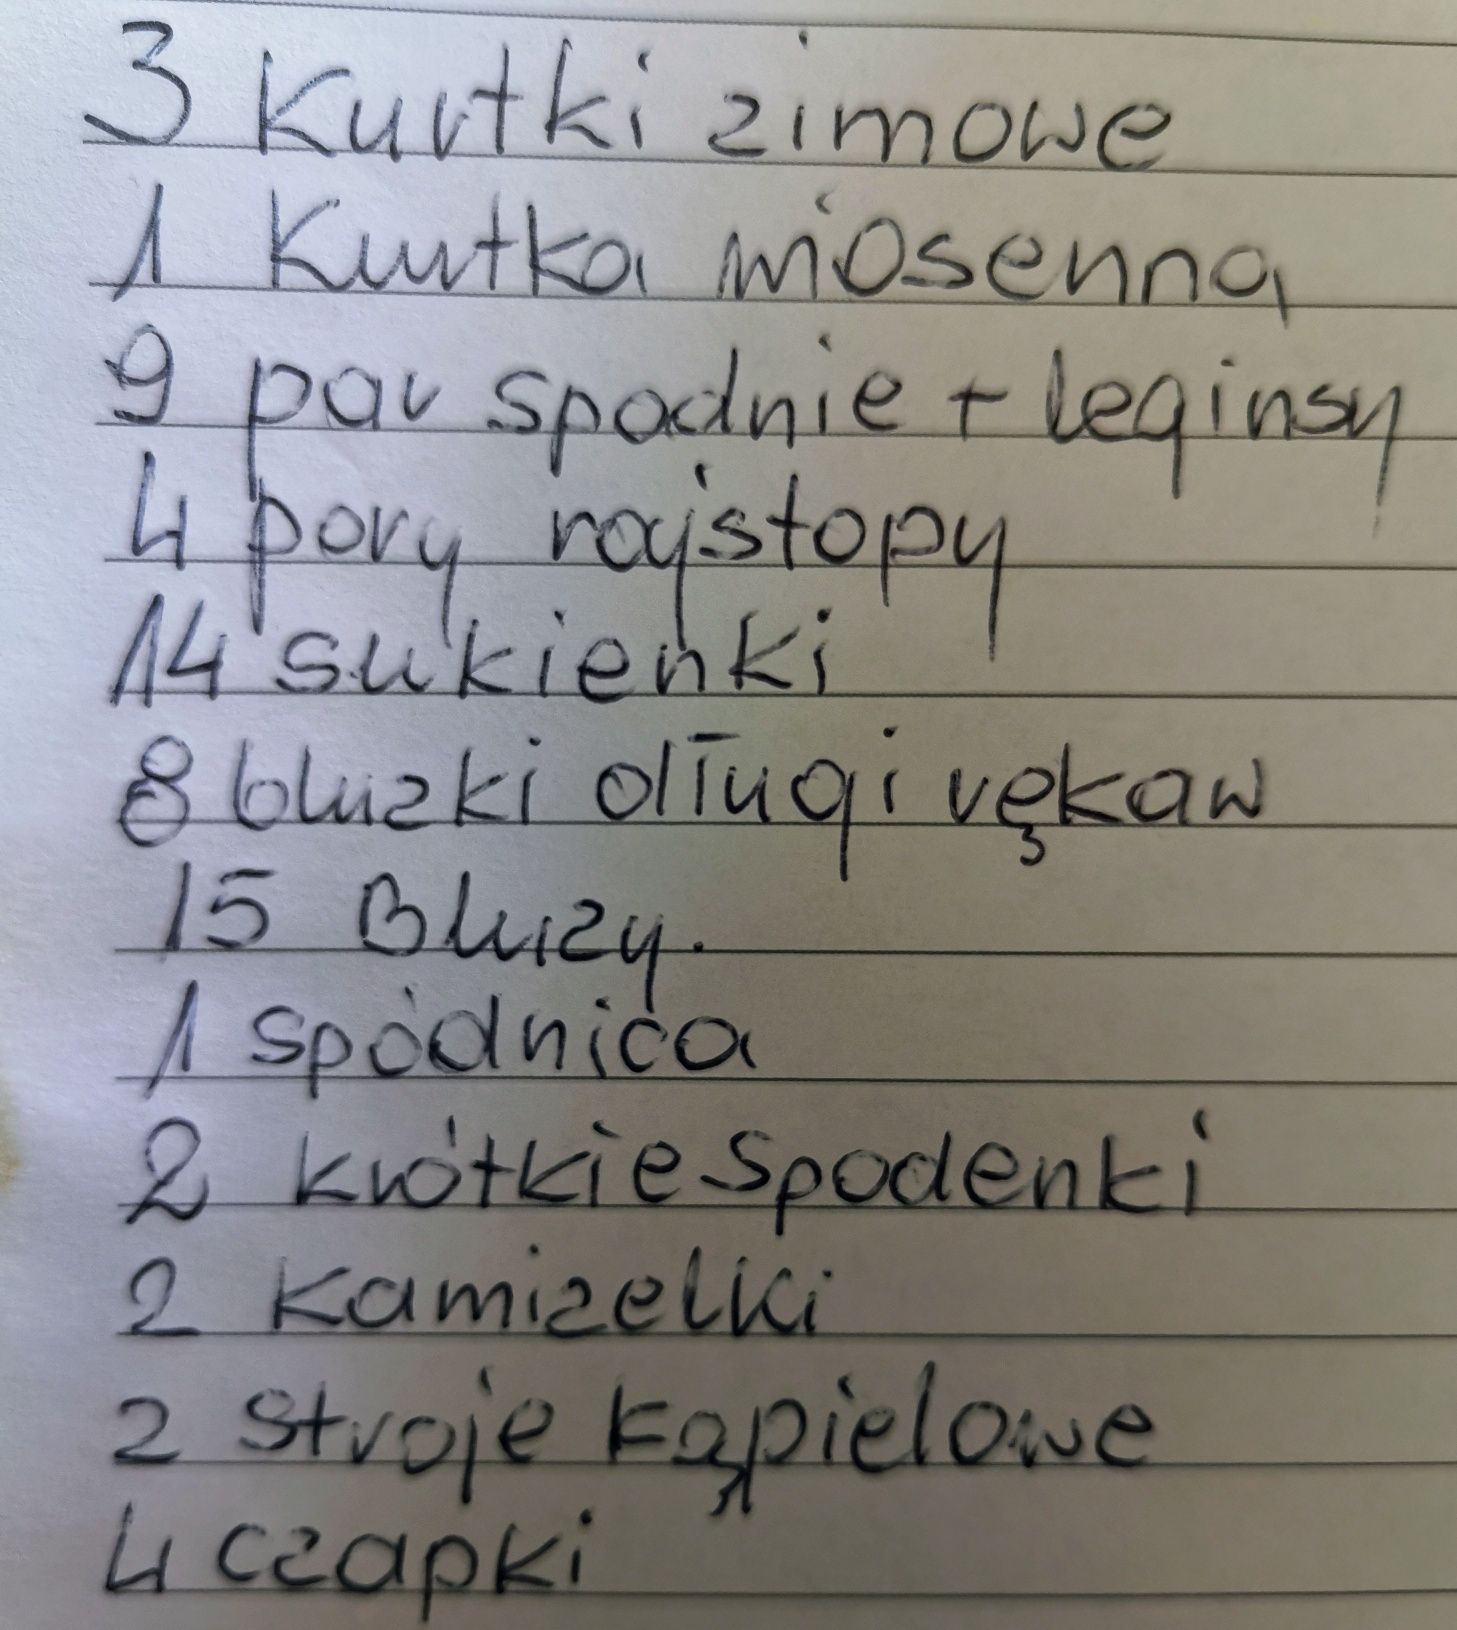 3 Kurtki zimowe
1 Kurtka wiosenna
9 par spodnie + leginsy
4 pary rajstopy
14 sukienki
8 bluzki długi rękaw
15 Bluzy.
1 spódnica
2 krótkie spodenki
2 kamizelki
2 stroje kąpielowe
4 czapki